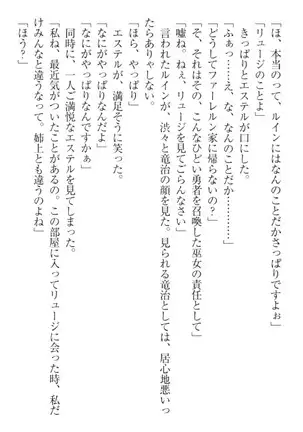 「ほ、本当のって、ルインにはなんのことだかさっぱりですよぉ」
「リュージのことよ」
きっぱりとエステルが口にした。
「ふぁっ……え、な、なんのことだか……」
「どうしてファーレルン家に帰らないの？」
「そ、それはその、こんなひどい勇者を召喚した巫女の責任として」
「嘘ね。ねぇ、リュージを見てごらんなさい」
言われたルインが、渋々と竜治の顔を見た。見られる竜治としては、居心地悪いっ
たらありゃしない。
「ほら、やっぱり」
エステルが、満足そうに笑った。
「なにがやっぱりなんだよ」
「なにがやっぱりなんですかぁ」
同時に、一人ご満悦なエステルを見てしまった。
「私ね、最近気がついたことがあるの。この部屋に入ってリュージに会った時、私だ
けみんなと違うなって。姉上とも違うのよね」
「ほう？」